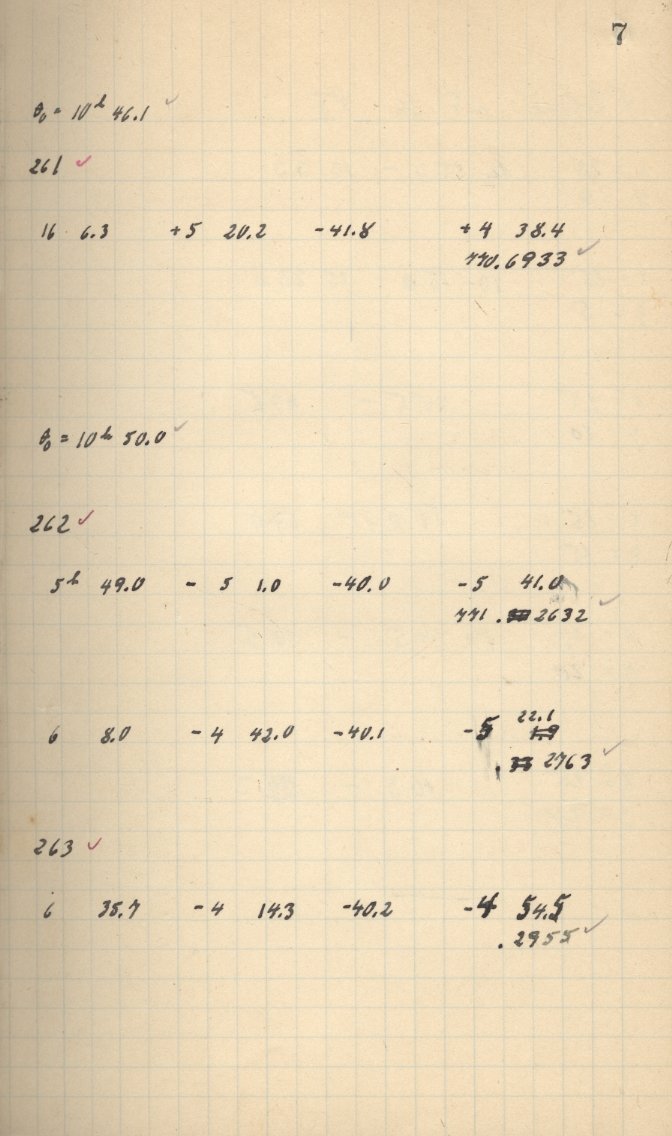 7
θ₀ = 10ʰ 46.1 ✓
261 ✓
16 6.3 +5 20.2 -41.8 +4 38.4
770.6933 ✓
θ₀ = 10ʰ 50.0 ✓
262 ✓
5ʰ 49.0 - 5 1.0 -40.0 -5 41.0
771.2632 ✓
22.1
6 8.0 -4 42.0 -40.1 -5
.2763 ✓
263 ✓
6 35.7 -4 14.3 -40.2 -4 54.5
.2955 ✓